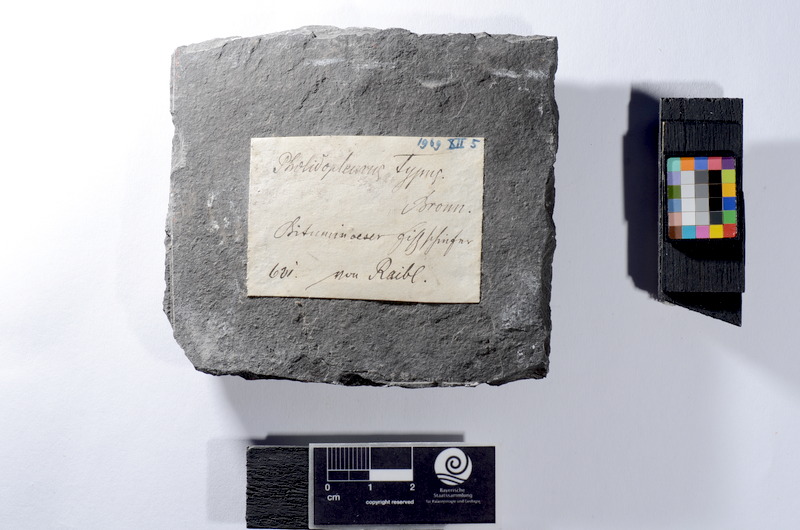 1969 XII 5
Pholidopleurus Typus.
Bronn.
Bituminoeser
von Raibl.
0 1 2
cm
copyright reserved
Bayerische
Staatssammlung
für Paläontologie und Geologie